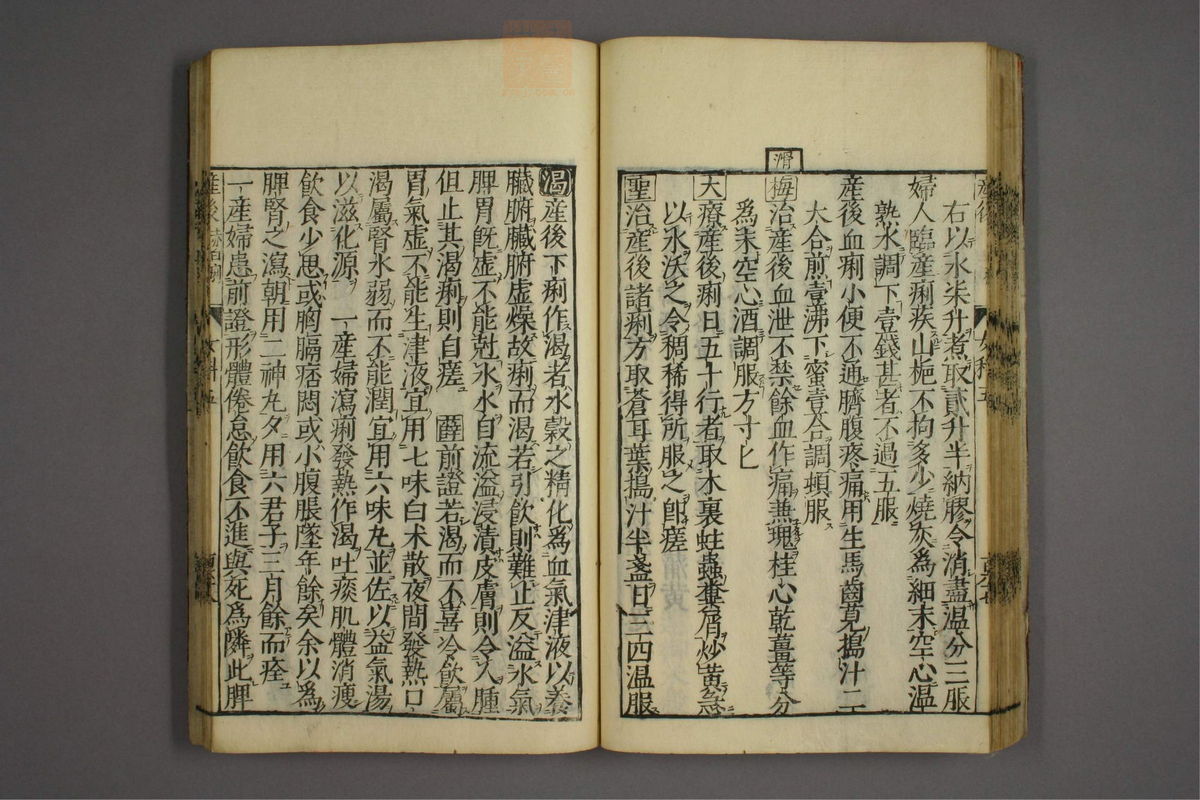 右以水柒升煮取貳升半納膠令消盡温分三服
婦人臨産痢疾山梔不拘多少燒灰爲細末空心温
熟水調下壹錢甚者不過五服
産後血痢小便不通臍腹疼痛用生馬齒莧搗汁二
大合煎壹沸下蜜壹合調頓服
滑
梅治産後血泄不禁餘血作痛兼塊桂心乾薑等分
爲末空心酒調服方寸匕
大療産後痢日五十行者取木裏蛀蟲糞屑炒黄急
以水沃之令稠稀得所服之卽瘥
聖治産後諸痢方取蒼耳葉搗汁半盞日三四温服
渴産後下痢作渴者水穀之精化爲血氣津液以養
臟腑臟腑虛燥故痢而渴若引飲則難止反溢水氣
脾胃旣虛不能尅水水自流溢浸漬皮膚則令人腫
但止其渴痢則自瘥 薛前證若渴而不喜冷飲屬
胃氣虛不能生津液宜用七味白术散夜間發熱口
渴屬腎水弱而不能潤宜用六味丸並佐以益氣湯
以滋化源 一産婦瀉痢發熱作渴吐痰肌體消瘦
飲食少思或胸膈痞悶或小腹脹墜年餘矣余以爲
脾腎之瀉朝用二神丸夕用六君子三月餘而痊
一産婦患前證形體倦怠飲食不進與死爲隣此脾
産後